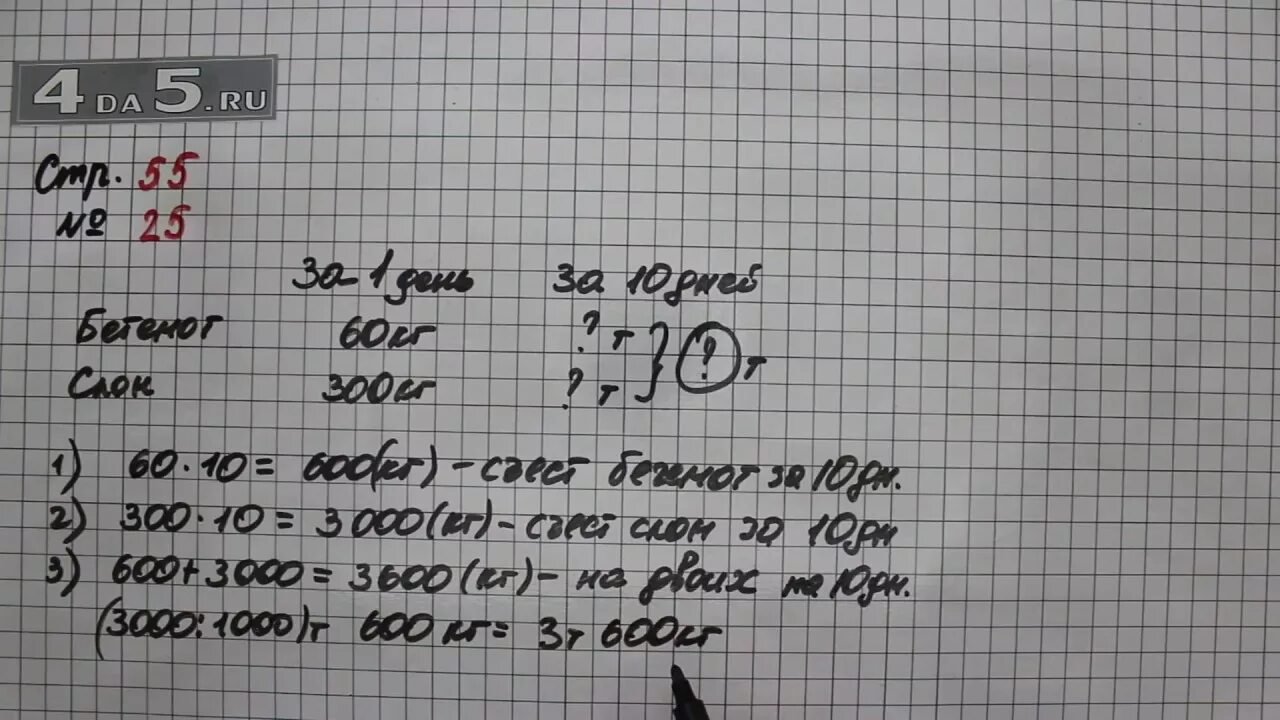 4 DA 5.RU
Стр. 55
№ 25
За 1 день За 10 дней
Бегемот 60кг ? т } ? т
Слон 300кг ? т
1) 60·10= 600(кг) – съест бегемот за 10 дн.
2) 300·10 = 3000(кг) – съест слон за 10 дн
3) 600+3000=3600(кг) – на двоих на 10 дн.
(3000:1000)т 600 кг= 3т 600кг